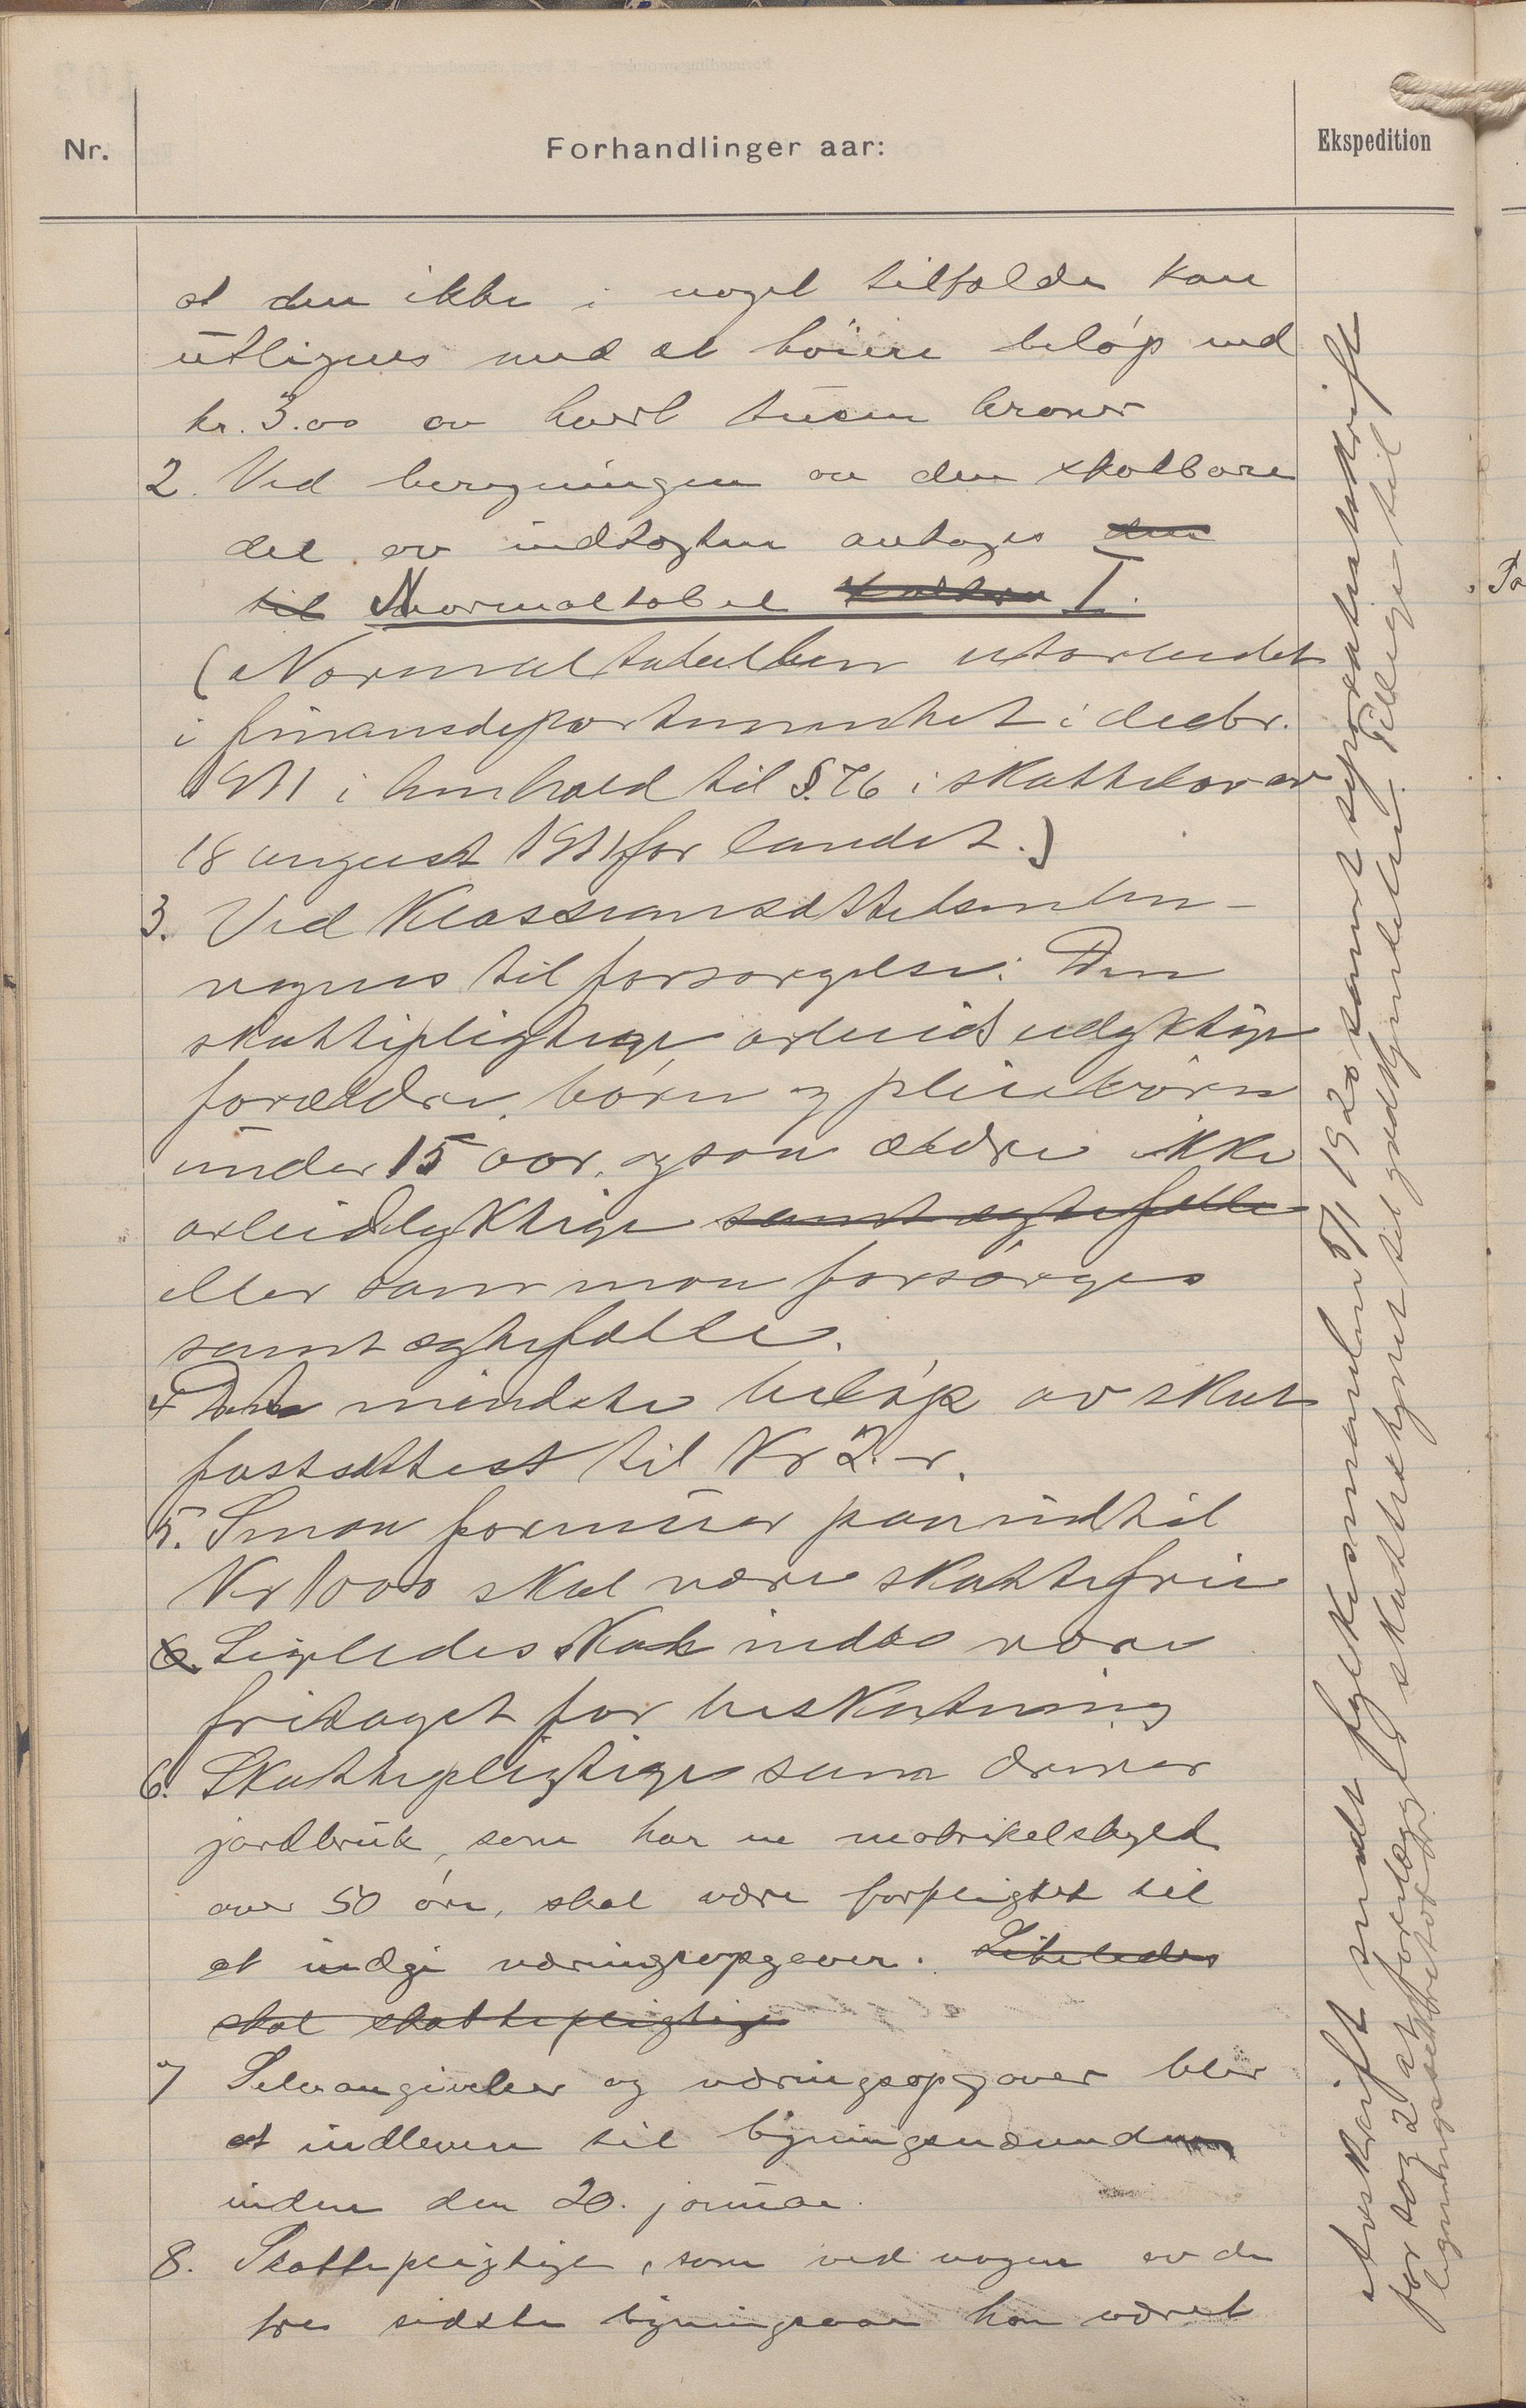 Nr.
Forhandlinger aar:
Ekspedition
at den ikke i noget tilfælde kan
utlignes med et høiere beløp end
kr. 3.00 av hvert tusen kroner
2. Ved beregningen av den skatbare
del av indtægten antages den
til Normaltabel I.
(Normaltabellen utarbeidet
i finansdepartementet i decbr.
1911 i henhold til §. 76 i skatteloven av
18 august 1911 for landet.)
3. Ved klasseansættelsen
regnes til forsørgelse: Den
skattepligtige arbeidsudyktige
forældre, børn og pleiebørn
under 15 aar, ogsaa ældre ikke
arbeidsdyktige samt egtefælle
eller som man forsørges
samt egtefælle.
4 Det mindste beløp av skat
fastsættes til Kr 2.-.
5. Smaa formuer paa indtil
Kr 1000 skal være skattefrie
6. Ligeledes skal indbo være
fritaget for beskatning
6. Skattepligtige som driver
jordbruk, som har en matrikelskyld
over 50 øre, skal være forpligtet til
at indgi næringsopgaver. Likeledes
skal skattepligtige
7 Selvangivelser og næringsopgaver blir
at indlevere til ligningsnævnden
inden den 20. januar.
8. Skattepligtige, som ved nogen av de
tre sidste ligningsaar har været
Utskrift sendt fylkesmanden 5/1 1920 samt separatutskrift
for sog 2 at forelægges skattestyret til godkjendelse. Tillegg til
ligningssekretær